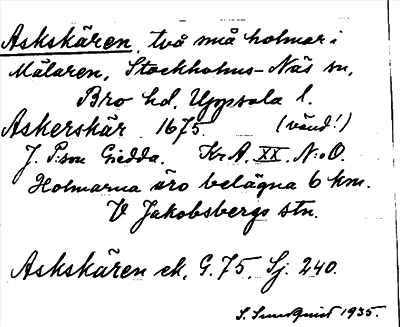 Askskären, två små holmar i
Mälaren, Stockholms-Näs sn,
Bro hd, Uppsala l.
Askerskär 1675. (vänd!)
J. P:son Giedda. Kr.A. XX. N:o O.
Holmarna äro belägna 6 km.
V Jakobsbergs stn.
Askskären ek. G. 75. Sj. 240.
S. Sundquist 1935.